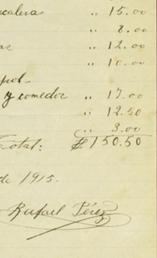 " 15.00
" 8.00
" 12.00
" 10.00
y comedor " 17.00
" 12.50
" 3.00
Total: ₡150.50
de 1915.
Rafael Pérez